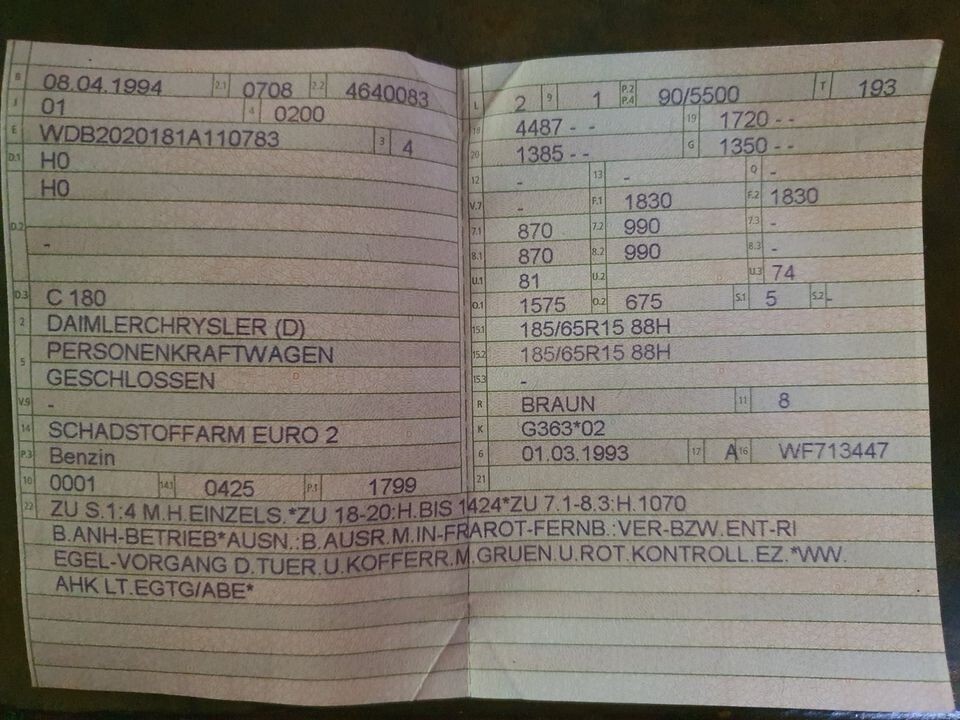 B 08.04.1994 2.1 0708 2.2 4640083
J 01 4 0200
E WDB2020181A110783 3 4
D.1 H0
D.2 H0
-
D.3 C 180
2 DAIMLERCHRYSLER (D)
5 PERSONENKRAFTWAGEN
GESCHLOSSEN
V.9 -
14 SCHADSTOFFARM EURO 2
P.3 Benzin
10 0001 14.1 0425 P.1 1799
L 2 9 1 P.2 P.4 90/5500 T 193
18 4487 - - 19 1720 - -
20 1385 - - G 1350 - -
12 - 13 - Q -
V.7 - F.1 1830 F.2 1830
7.1 870 7.2 990 7.3 -
8.1 870 8.2 990 8.3 -
U.1 81 U.2 U.3 74
O.1 1575 O.2 675 S.1 5 S.2 -
15.1 185/65R15 88H
15.2 185/65R15 88H
15.3 -
R BRAUN 11 8
K G363*02
6 01.03.1993 17 A 16 WF713447
21
22 ZU S.1:4 M.H.EINZELS.*ZU 18-20:H.BIS 1424*ZU 7.1-8.3:H.1070
B.ANH-BETRIEB*AUSN.:B.AUSR.M.IN-FRAROT-FERNB.:VER-BZW.ENT-RI
EGEL-VORGANG D.TUER.U.KOFFERR.M.GRUEN.U.ROT.KONTROLL.EZ.*WW.
AHK LT.EGTG/ABE*